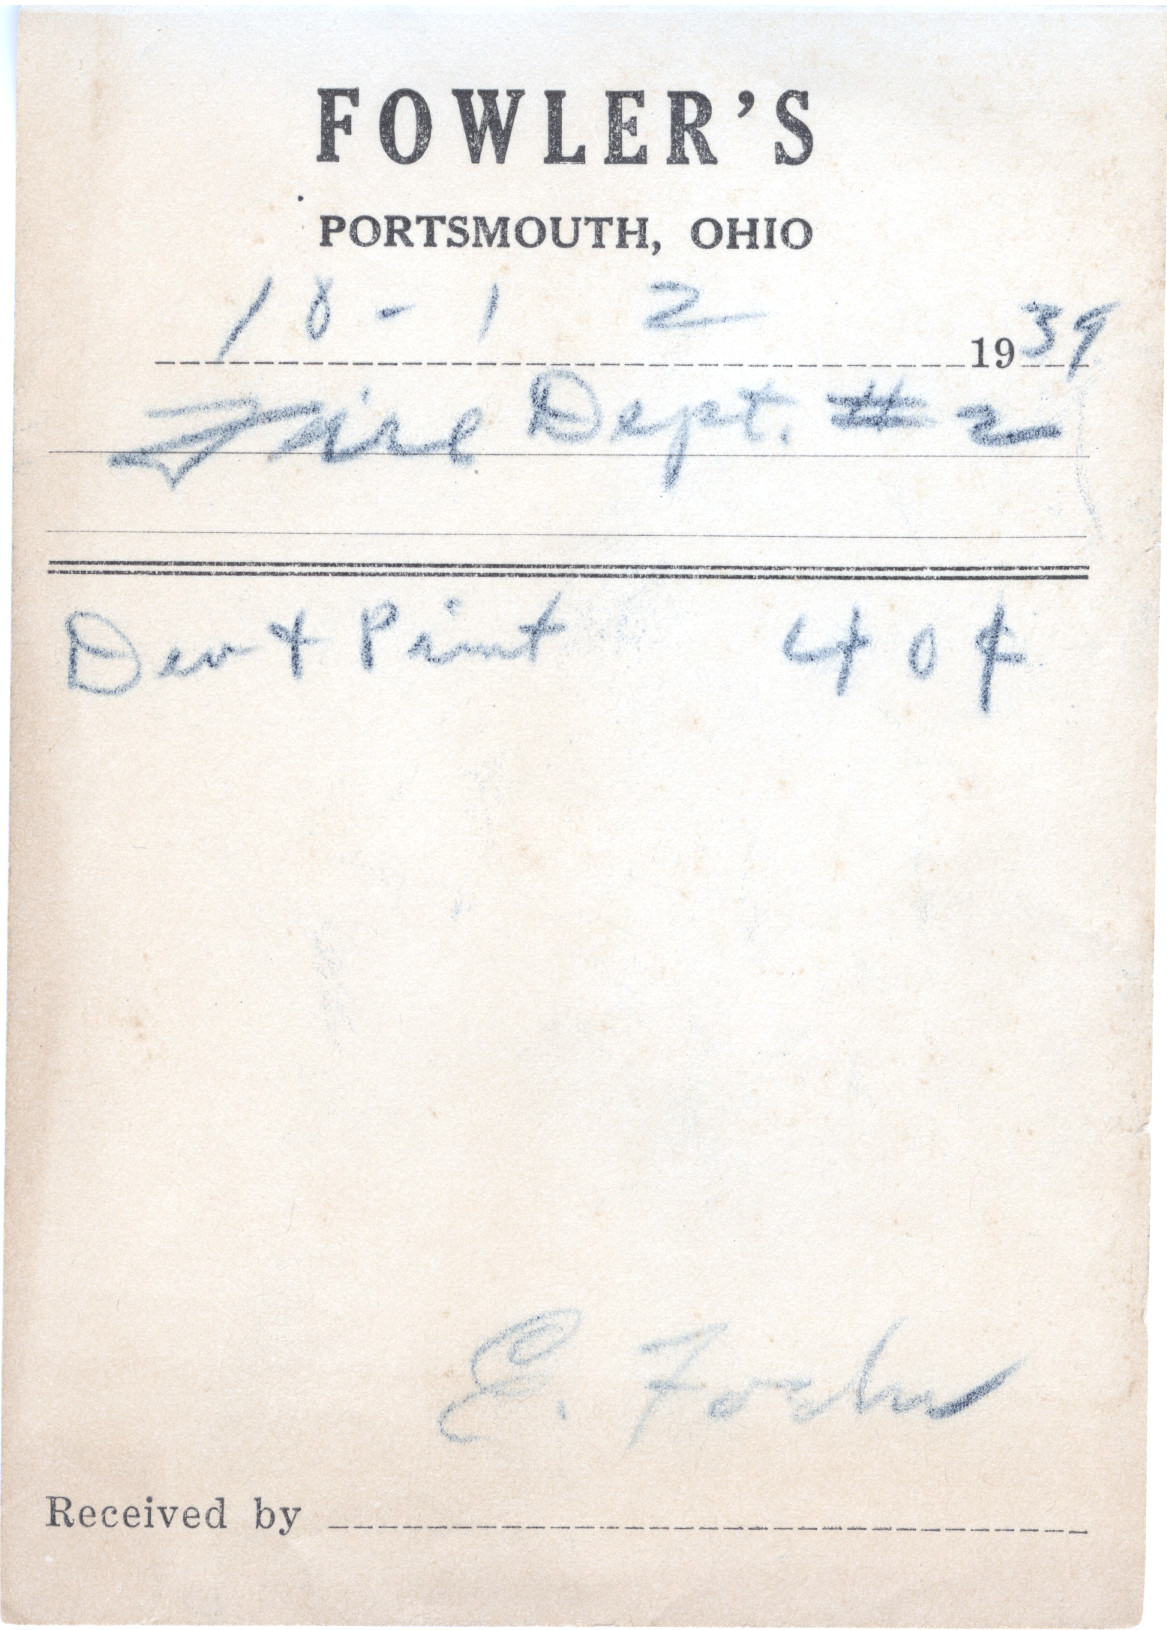 FOWLER'S
PORTSMOUTH, OHIO
10-12 1939
Fire Dept. #2
Dev + Print 40¢
E.
Received by